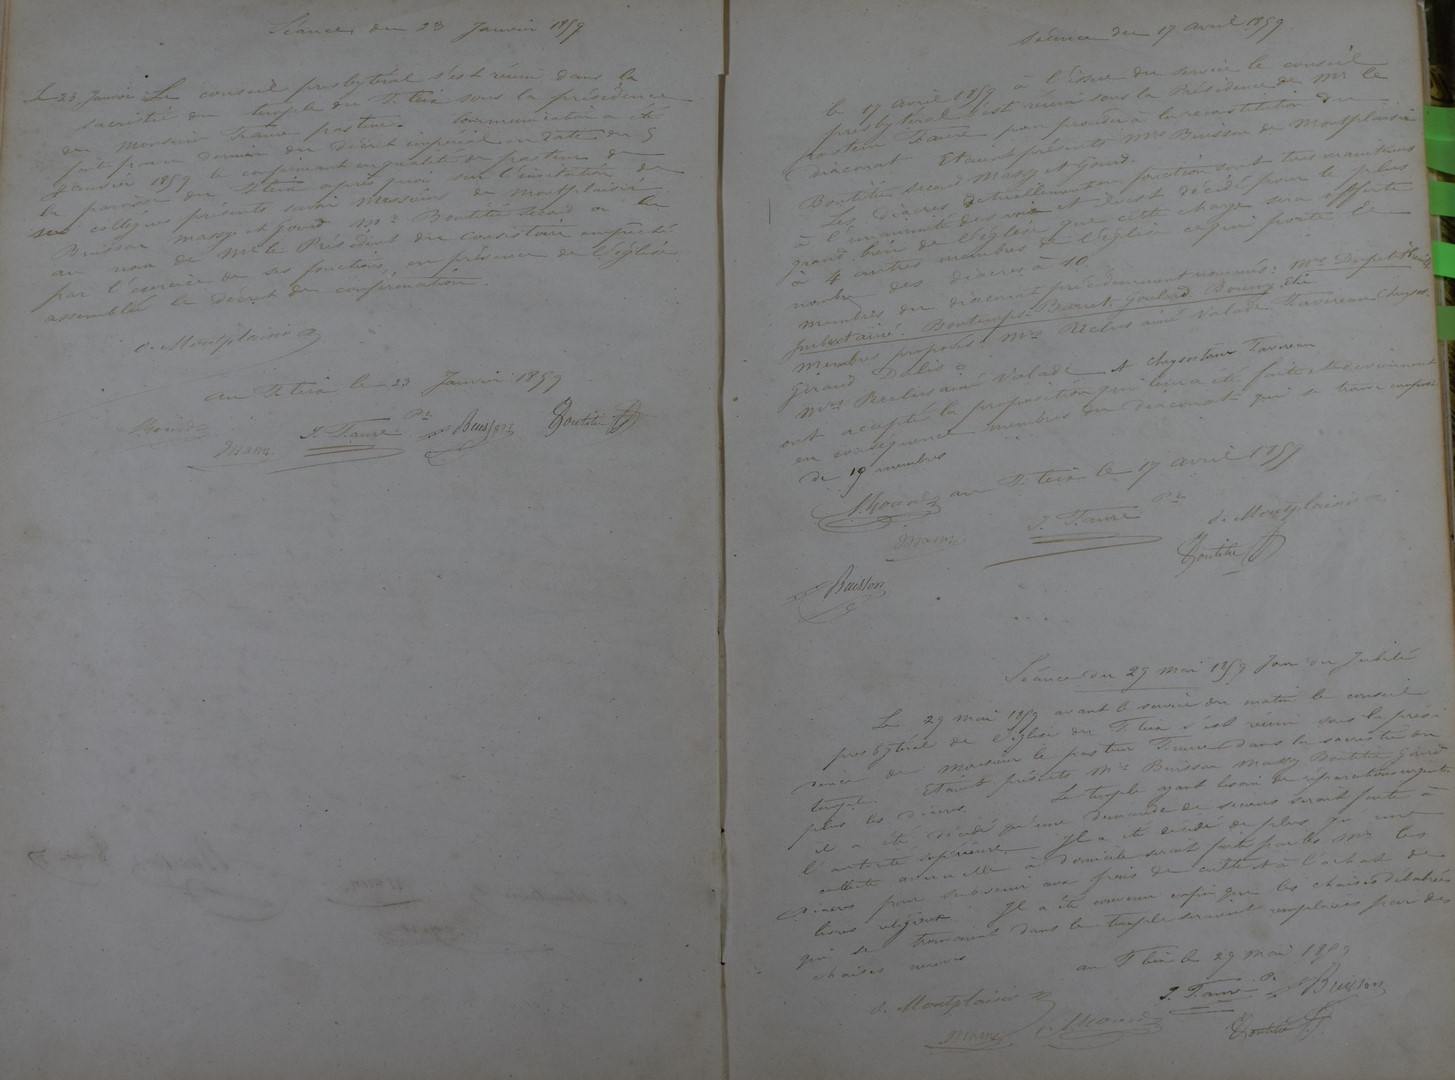 Séance du 23 Janvier 1859
Le 23 Janvier Le conseil presbytéral s'est réuni dans la
sacristie du temple du Fleix sous la présidence
de Monsieur Faure pasteur. Communication a été
faite par ce dernier du décret impérial en date du 5
Janvier 1859 le confirmant en qualité de pasteur de
la paroisse du Fleix après quoi sur l'invitation de
ses collègues présents savoir Messieurs de Montplaisir
Buisson Massy et Gourd Mr Boutitié second a lu
au nom de Mr le Président du Consistoire empêché
par l'exercice de ses fonctions, en présence de l'église
assemblée le décret de confirmation.
de Montplaisir
au Fleix le 23 Janvier 1859
Gourd
Massy
J. Faure Pr
Buisson
Boutitié
Séance du 17 avril 1859
le 17 avril 1859 à l'issue du service le conseil
presbytéral s'est réuni sous la Présidence de Mr le
pasteur Faure pour procéder à la reconstitution du
diaconat. Etaient présents Mrs Buisson de Montplaisir
Boutitié second Massy et Gourd.
Les diacres actuellement en fonction sont tous maintenus
à l'unanimité des voix et il est décidé pour le plus
grand bien de l'église que cette charge sera offerte
à 4 autres membres de l'église ce qui porte le
nombre des diacres à 10
membres du diaconat précédemment nommés: Mrs
Boutemps Barret Goulard
membres proposés Mrs Reclus aîné Valade Favereau
Giraud
Mrs Reclus aîné Valade et Chrysostome Favereau
ont accepté la proposition qui leur a été faite et deviennent
en conséquence membres du diaconat qui se trouve composé
de 19 membres
au Fleix le 17 avril 1859
Gourd
Massy
J. Faure Pr
de Montplaisir
Boutitié
Buisson
Séance du 29 mai 1859 Jour du Jubilé
Le 29 mai 1859 avant le service du matin le conseil
presbytéral de l'église du Fleix s'est réuni sous la prési-
dence de Monsieur le pasteur Faure dans la sacristie du
temple. Etaient présents Mrs Buisson Massy Boutitié Gourd
plus les diacres. Le temple ayant besoin de réparations urgentes
il a été décidé qu'une demande de secours serait faite à
l'autorité supérieure. Il a été décidé de plus qu'une
collecte annuelle à domicile serait faite par les Mrs les
diacres pour subvenir aux frais de culte et à l'achat de
livres religieux. Il a été convenu enfin que les chaises délabrées
qui se trouvaient dans le temple seraient remplacées par des
chaises neuves
au Fleix le 29 mai 1859
de Montplaisir
J. Faure Pr
Buisson
Massy
Gourd
Boutitié